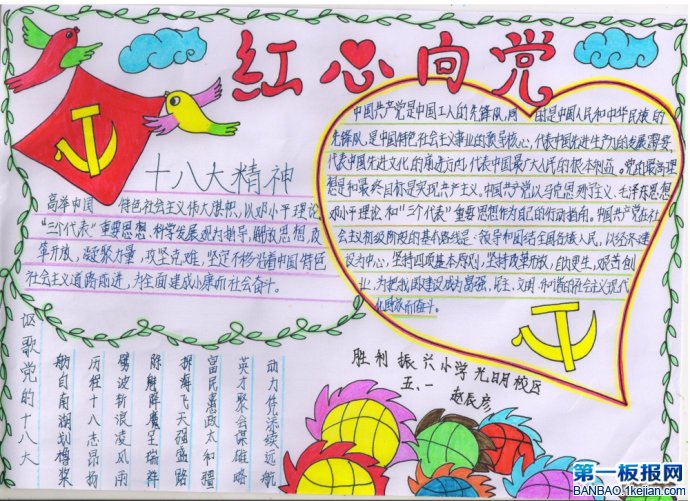 红心向党
十八大精神
高举中国 特色社会主义伟大旗帜,以邓小平理论
"三个代表"重要思想、科学发展观为指导,解放思想,改
革开放,凝聚力量,攻坚克难,坚定不移沿着中国特色
社会主义道路前进,为全面建成小康而社会奋斗。
中国共产党是中国工人的先锋队,同 的是中国人民和中华民族的
先锋队,是中国特色社会主义事业的领导核心,代表中国先进生产力的发展需要,
代表中国先进文化的前进方向,代表中国最广大人民的根本利益。党的最高理
想是和最终目标是实现共产主义。中国共产党以马克思列宁主义、毛泽东思想
邓小平理论和"三个代表"重要思想作为自己的行动指南。中国共产党在社
会主义初级阶段的基本路线是:领导和团结全国各族人民,以经济建
设为中心,坚持四项基本原则,坚持改革开放,自力更生,艰苦创
业,为把我国建设成为富强、民主、文明、和谐的社会主义现代
化国家而奋斗。
讴歌党的十八大
舫自南湖划橹桨
历程十八志昂扬
劈波斩浪凌风雨
除魔降魔呈瑞祥
探海飞天强盛路
富民惠政太和疆
英才聚会谋雄略
动力凭添续远航
胜利振兴小学光明校区
五.一 赵辰彦
第一板报网
BANBAO.1kejian.com